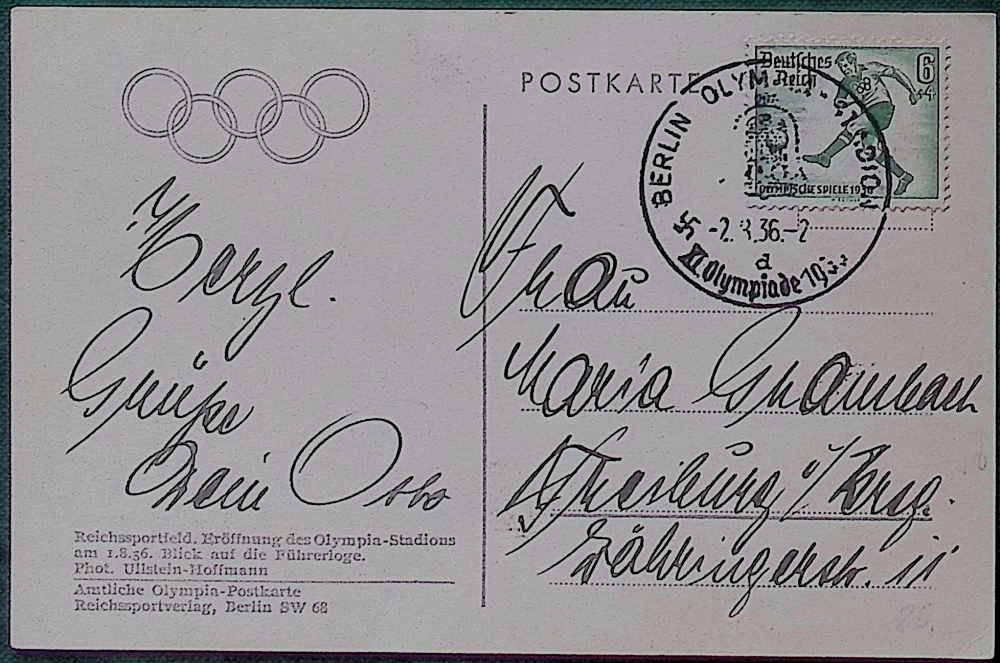 POSTKARTE
Deutsches
Reich
6
+4
OLYMPISCHE SPIELE 1936
BERLIN OLYMPIA-STADION
-2.8.36.-2
d
XI. Olympiade 1936
Herzl.
Grüße
Dein Otto
Frau
Maria Grambach
Freiburg i/Brsg.
Zähringerstr. 11
Reichssportfeld. Eröffnung des Olympia-Stadions
am 1.8.36. Blick auf die Führerloge.
Phot. Ullstein-Hoffmann
Amtliche Olympia-Postkarte
Reichssportverlag, Berlin SW 68